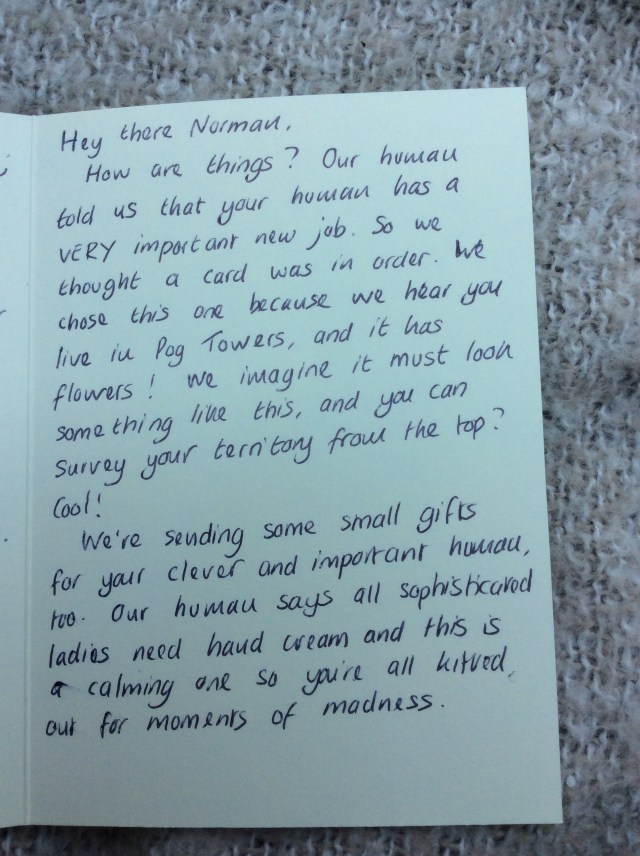 Hey there Norman,
How are things? Our human
told us that your human has a
VERY important new job. So we
thought a card was in order. We
chose this one because we hear you
live in Pog Towers, and it has
flowers! We imagine it must look
something like this, and you can
survey your territory from the top?
Cool!
We're sending some small gifts
for your clever and important human,
too. Our human says all sophisticated
ladies need hand cream and this is
a calming one so you're all kitted
out for moments of madness.